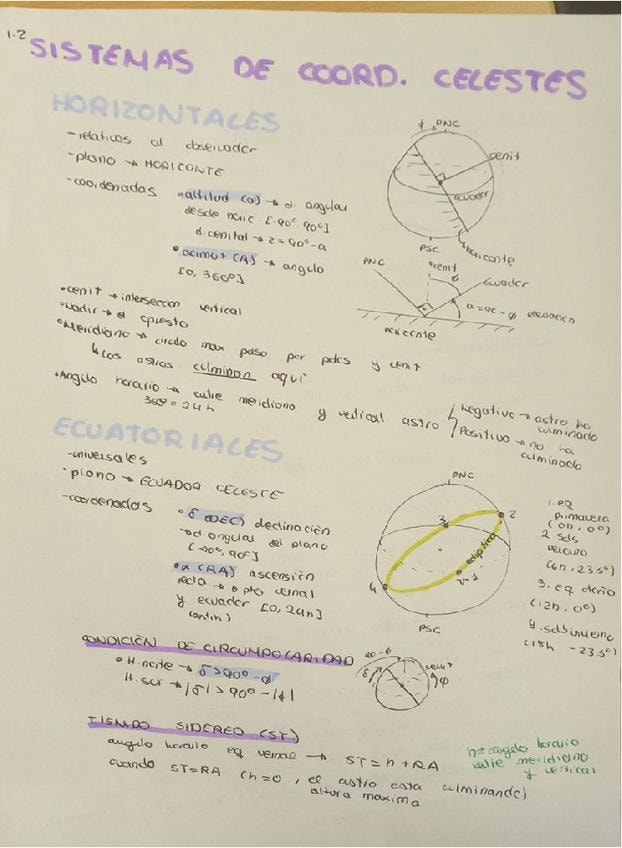 1.2
SISTEMAS DE COORD. CELESTES
HORIZONTALES
-relativos al observador
-plano → HORIZONTE
-coordenadas • altitud (a) → d. angular
desde horiz. [-90º, 90º]
d. cenital → z = 90º-a
• acimut (A) → angulo
[0, 360º]
•cenit → interseccion vertical
•Nadir → el opuesto
•Meridiano → circulo max paso por polos y cenit
↳ Los astros culminan aquí
•Angulo horario → entre meridiano y vertical astro
360º = 24h
Negativo → astro ha
culminado
Positivo → no ha
culminado
PNC
cenit
ecuador
PSC
horizonte
PNC
cenit
ecuador
elevación
horizonte
ECUATORIALES
-universales
-plano → ECUADOR CELESTE
-coordenadas • δ (DEC) declinación
→d angular al plano
[-90º, 90º]
• α (RA) ascensión
recta → pto vernal
y ecuador [0, 24h]
PNC
2
3
1
4
ecliptica
PSC
1. eq
primavera
(0h, 0º)
2 sols
verano
(6h, 23.5º)
3. eq otoño
(12h, 0º)
4. sols invierno
(18h -23.5º)
CONDICIÓN DE CIRCUMPOLARIDAD
• H. norte → δ > 90º - ϕ
H. sur → |δ| > 90º - |ϕ|
90-ϕ
cenit
δ
ϕ
TIEMPO SIDEREO (ST)
angulo horario eq vernal → ST = h + RA
cuando ST=RA (h=0, el astro esta culminando)
altura maxima
h = angulo horario
entre meridiano
y vertical